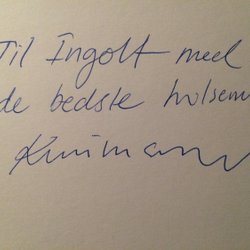 Til Ingolf med
de bedste hilsener